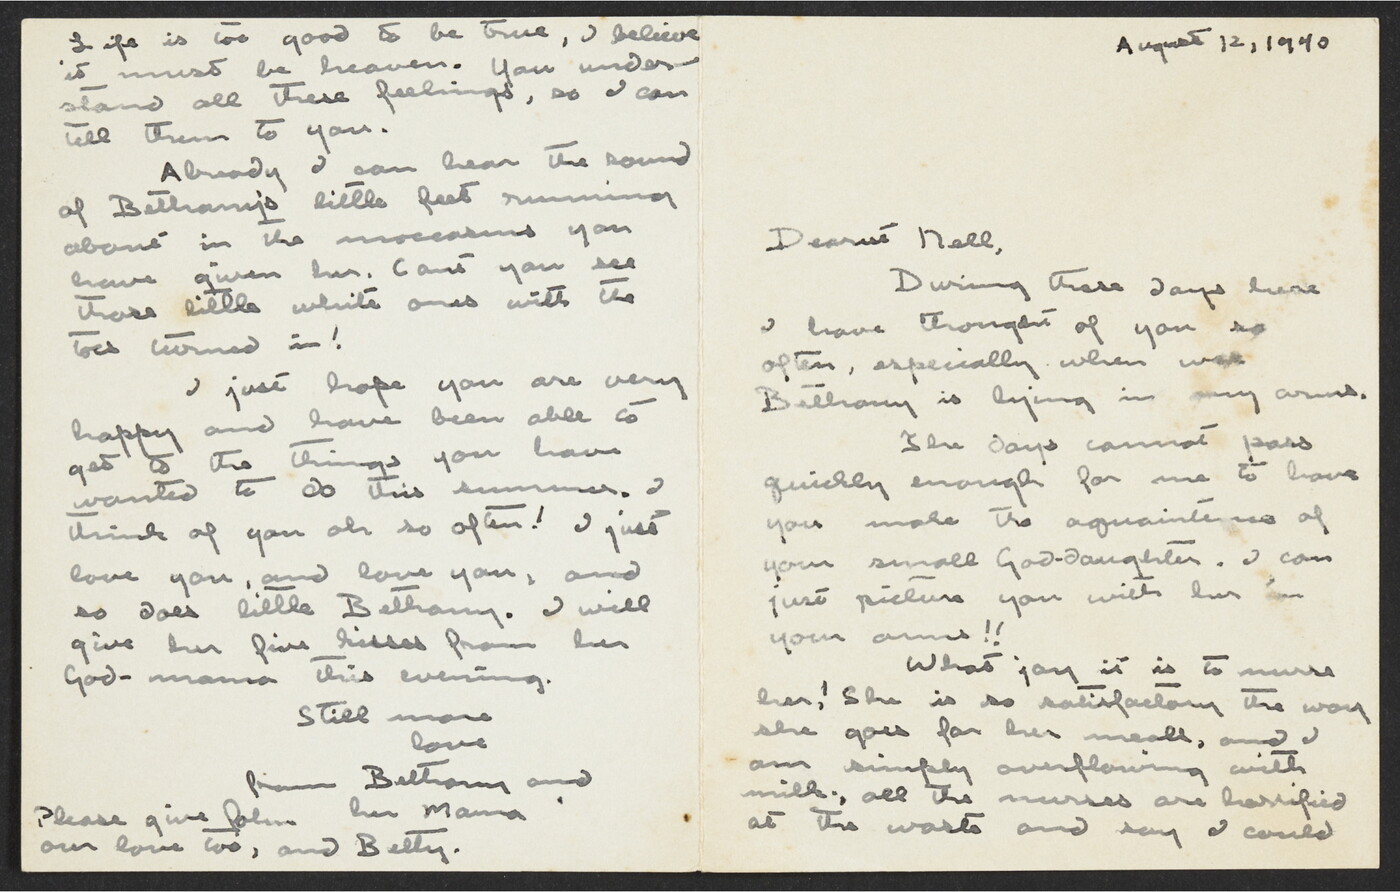 August 12, 1940
Dearest Mell,
During these days here
I have thought of you so
often, especially when wee
Bethany is lying in my arms.
The days cannot pass
quickly enough for me to have
you make the aquaintence of
your small God-daughter. I can
just picture you with her in
your arms!!
What joy it is to nurse
her! She is so satisfactory the way
she goes for her meals, and I
am simply overflowing with
milk., all the nurses are horrified
at the waste and say I could
Life is too good to be true, I believe
it must be heaven. You under-
stand all these feelings, so I can
tell them to you.
Already I can hear the sound
of Bethany's little feet running
about in the moccasins you
have given her. Cant you see
those little white ones with the
toes turned in!
I just hope you are very
happy and have been able to
get to the things you have
wanted to do this summer. I
think of you oh so often! I just
love you, and love you, and
so does little Bethany. I will
give her five kisses from her
God-mama this evening.
Still more
love
from Bethany and
her Mama
Please give John
our love too, and Betty.